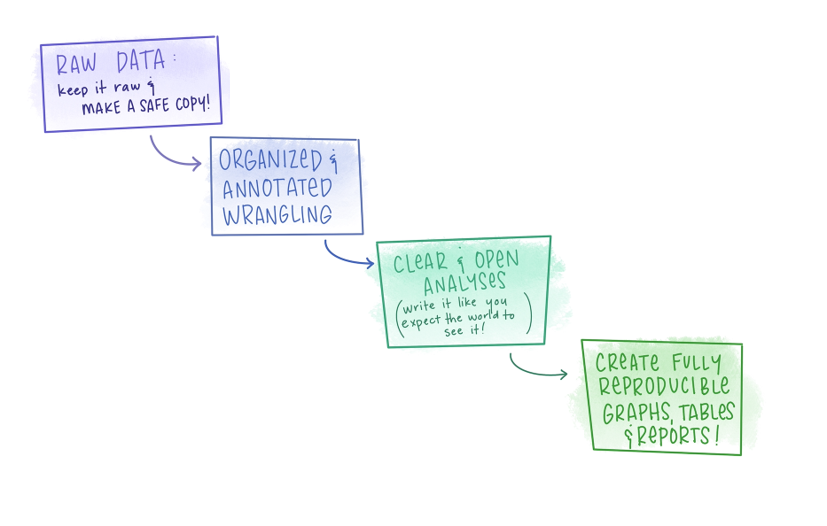 RAW DATA:
keep it raw &
MAKE A SAFE COPY!
ORGANIZED &
ANNOTATED
WRANGLING
CLEAR & OPEN
ANALYSES
(write it like you
expect the world to
see it!)
CREATE FULLY
REPRODUCIBLE
GRAPHS, TABLES
& REPORTS!